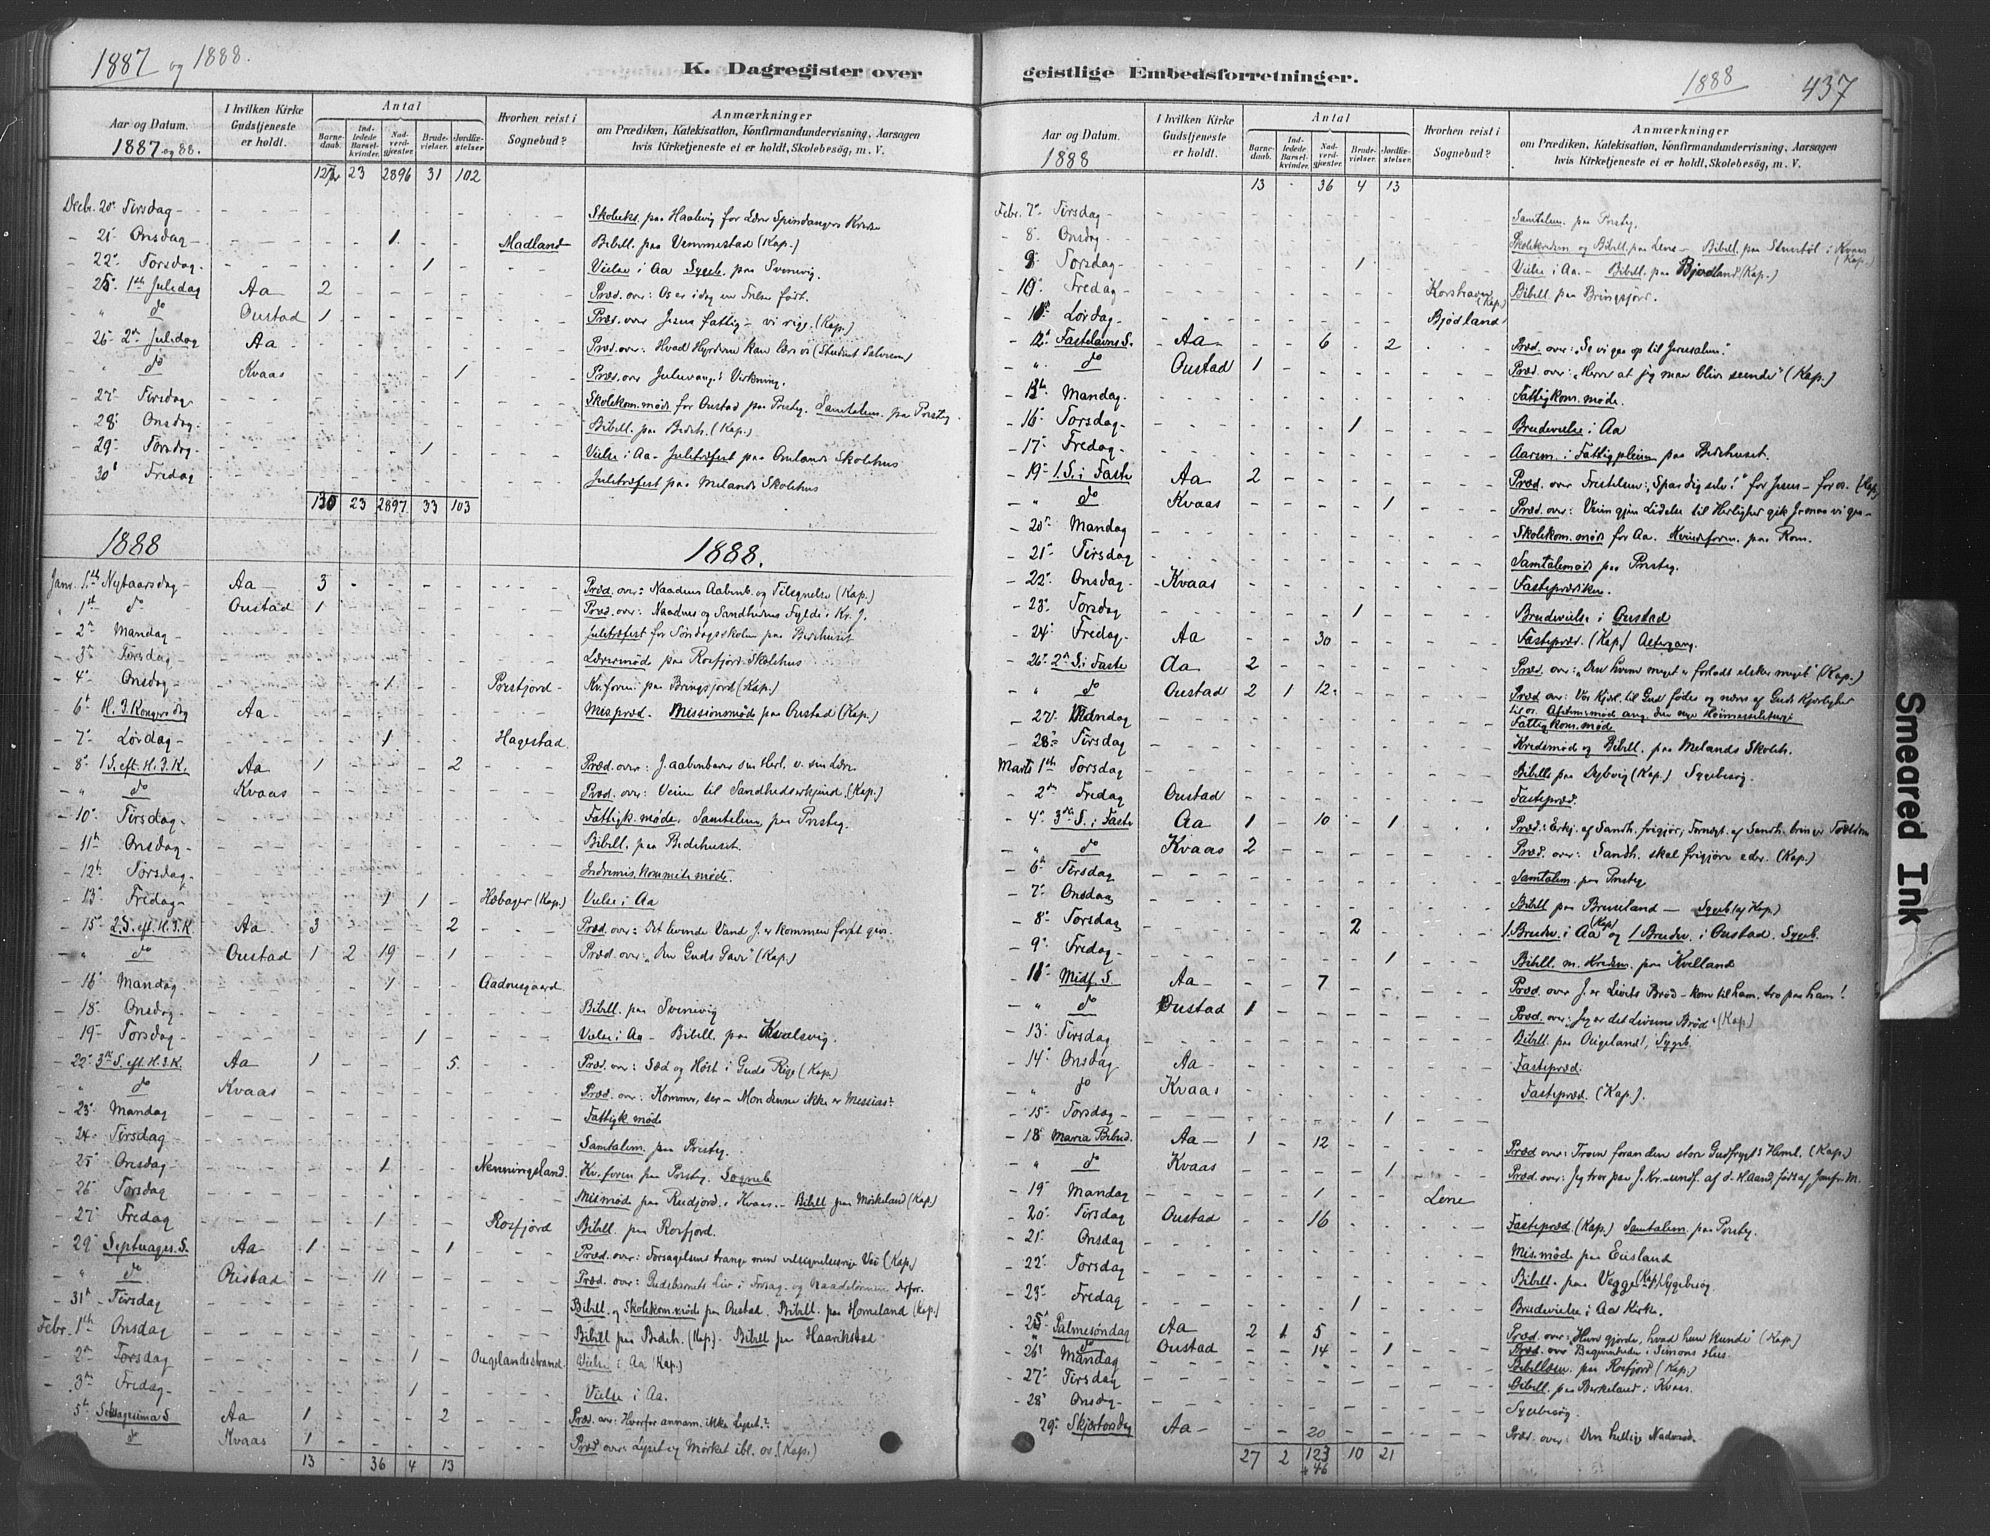 1887 og 1888.
K. Dagregister over
Aar og Datum.
1887 og 88.
I hvilken Kirke Gudstjeneste er holdt.
Antal
Barne-daab.
Ind-ledede Barsel-kvinder.
Nad-verd-gjester.
Brude-vielser.
Jordfæ-stelser.
Hvorhen reist i Sognebud?
Anmærkninger
om Prædiken, Katekisation, Konfirmandundervisning, Aarsagen
hvis Kirketjeneste ei er holdt, Skolebesøg, m. V.
23 2896 31 102
Decbr. 20 Tirsdag
- 21 Onsdag 1 Madland Bibell. paa Vemmestad (Kap.)
- 22 Torsdag 1 Vielse i Aa Sygeb. paa Svenevig.
- 25 1ste Juledag Aa 2 Præd. over: Os er idag en Frelser født.
" do Oustad 1 Præd. over Jesus fattig - vi rige. (Kap.)
- 26 2n Juledag Aa Præd. over: Hvad Hyrderne kan lære os (Student Salvesen)
" do Kvaas 1 Præd. over Juleevang. Virkning.
- 27 Tirsdag Skolekom.møde for Oustad paa Presteg. Samtalem. paa Presteg.
28 Onsdag Bibell. paa Bedeh. (Kap.)
- 29 Torsdag 1 Vielse i Aa. Juletræfest paa Omlands Skolehus
30 Fredag Juletræfest paa Melands Skolehus
130 23 2897 33 103
1888 1888.
Jan. 1ste Nytaarsdag Aa 3 Præd. over: Naadens Aabenb. og Tilsignelse (Kap.)
" 1st do Oustad 1 Præd. over: Naadens og Sandhedens Fylde i Kr. J.
- 2 Mandag Juletræfest for Søndagsskolen paa Bedehuset
- 3 Tirsdag Lærermøde paa Rosfjord Skolehus
- 4 Onsdag 1 Prestjord Kv.foren. paa Bringsjord (Kap.)
- 6 H. 3. Kongers dag Aa Mispræd. Missionsmøde paa Oustad (Kap.)
- 7 Lørdag 1 Hagestad.
- 8 1 S. eft. H. 3. K. Aa 1 2 Præd. over: J. aabenbarer sin Herl. v. sin Lære
" do Kvaas Præd. over: Veien til Sandhedserkjend. (Kap.)
- 10 Tirsdag Fattigk.møde. Samtalem. paa Presteg.
- 11 Onsdag Bibell. paa Bedehuset.
- 12 Torsdag Indremis.kommitemøde.
- 13 Fredag 1 1 Hæbager (Kap.) Vielse i Aa
- 15 2. S. eft. H. 3. K. Aa 3 2 Præd. over: Det levende Vand J. er kommen forat give.
" do Oustad 1 2 19 1 Præd. over: „Den Guds Gave" (Kap.)
- 16 Mandag 1 Aadnesgaard
- 18 Onsdag Bibell. paa Svenevig
- 19 Torsdag 1 Vielse i Aa - Bibell. paa Kvalsvig.
- 22 3die S. eft. H. 3. K. Aa 1 5 Præd. over: Sæd og Høst i Guds Rige (Kap.)
" do Kvaas Præd. over: Kommer, ser - Mon denne ikke er Messias?
- 23 Mandag Fattigk.møde
- 24 Tirsdag Samtalem. paa Presteg.
- 25 Onsdag 1 Nenningsland. Kv.foren paa Presteg. Sogneb
- 26 Torsdag Mismøde paa Rudjord i Kvaas. - Bibell paa Mørkeland (Kap.)
- 27 Fredag 1 Rosfjord Bibell. paa Rosfjord.
- 29 Septuages. S. Aa 1 1 Præd. over: Forsagelsens trange men velsignelsesrige Vei (Kap.)
" do Oustad 11 Præd. over: Gudsbarnets Liv i Forsag. og Naadelønnen derfor.
- 31 Tirsdag Bibell. og Skolekom.møde paa Oustad. Bibell. paa Homeland (Kap.)
Febr. 1ste Onsdag Bibell paa Bedeh. (Kap.) - Bibell paa Haarikstad
- 2 Torsdag 1 Ougelandsstrand. Vielse i Aa (Kap.)
- 3 Fredag 1 Vielse i Aa.
- 5 Seksagesima S. Aa 1 2 Præd. over: Hvorfor annam. ikke Lyset?
do Kvaas 1 Præd over: Lyset og Mørket ibl. os (Kap.)
13 36 4 13
1888
437
geistlige Embedsforretninger.
Aar og Datum.
1888
I hvilken Kirke Gudstjeneste er holdt.
Antal
Barne-daab.
Ind-ledede Barsel-kvinder.
Nad-verd-gjester.
Brude-vielser.
Jordfæ-stelser.
Hvorhen reist i Sognebud?
Anmærkninger
om Prædiken, Katekisation, Konfirmandundervisning, Aarsagen
hvis Kirketjeneste ei er holdt, Skolebesøg, m. V.
13 - 36 4 13
Febr. 7 Tirsdag Samtalem. paa Presteg.
8 Onsdag Bibell. paa Lene - Bibell. paa i Kvaas (Kap.)
9 Torsdag 1 Vielse i Aa. - Bibell. paa Bjodland (Kap.)
- 10 Fredag Korshavn (Kap.) Bibell. paa Bringsjord.
- Lørdag Bjodland
- 12 Fastelavns S. Aa 6 2 Præd. over: „Se vi gaa op til Jerusalem."
- " do Oustad 1 Præd. over: „Herre at jeg maa blive seende" (Kap.)
- 13 Mandag Fattigkom.møde.
- 16 Torsdag 1 Brudevielse i Aa
- 17 Fredag Aarsm. i Fattigpleien paa Bedehuset.
- 19 1. S. i Faste Aa 2 Præd. over Fristelsen: „Spar dig selv!" for Jesus - for os. (Kap.)
" do Kvaas 1 Præd. over: Veien gjen. Lidelse til Herlighed
- 20 Mandag Skolekom.møde for Aa. Kvindeform. paa Rom.
- 21 Tirsdag Samtalemøde paa Presteg.
- 22 Onsdag Kvaas Fasteprædiken.
- 23 Torsdag 1 Brudevielse i Oustad
- 24 Fredag Aa 30 Fastepræd. (Kap.) Altergang.
- 26 2n S. i Faste Aa 2 Præd. over: „Den hvem meget er forladt elsker meget" (Kap.)
" do Oustad 2 1 12 Præd over: Vor Kjærl. til Gud fødes og næres af Guds Kjærlighed
til os.
- 27 Mandag Fattigkom.møde
- 28 Tirsdag Kredsmøde og Bibell. paa Melands Skoleh.
Marts 1ste Torsdag Bibell. paa Dybvig (Kap.) Sygebesøg.
- 2 Fredag Oustad Fastepræd.
- 4 3die S. i Faste Aa 1 10 1 Præd.: Erkj. af Sandh. frigjør, Fornegt. af Sandh. bringer Trældom
" do Kvaas 2 Præd. over: Sandh. skal frigjøre eder. (Kap.)
- 6 Tirsdag Samtalem. paa Presteg
- 7 Onsdag Bibell paa Bruseland - Sygeb. (af Kap.)
- 8 Torsdag 2 1 Brudev. i Aa (Kap.) og 1 Brudev. i Oustad. Sygeb.
- 9 Fredag 1 Bibell. m. Kredsm. paa Kvelland
- Midf. S. Aa 7 Præd. over J. er Livets Brød - kom til ham, tro paa ham!
" do Oustad 1 Præd. over: „Jeg er det Livsens Brød." (Kap)
- 13 Tirsdag Bibell. paa Ougeland, Sygeb.
- 14 Onsdag Aa Fastepræd.
" do Kvaas Fastepræd. (Kap.).
- 15 Torsdag 1
- 18 Maria Bebud. Aa 1 12 Præd over: Troen foran den store Gudfrygt. Heml. (Kap.)
" do Kvaas 1 Præd. over: Jeg tror paa J. Kr. - undf. af d. H. Aand, født af Jomfr. M.
- 19 Mandag 1 Lene
- 20 Tirsdag Oustad 16 Fastepræd (Kap.) Samtalem. paa Presteg.
- 21 Onsdag Mis.møde paa Eiisland
- 22 Torsdag Bibell. paa Vegge (Kap.) Sygebesøg
- 23 Fredag 1 Brudevielse i Aa Kirke.
- 25 Palmesøndag Aa 2 1 5 Præd. over: Hun gjorde, hvad hun kunde (Kap.)
do Oustad 14 1 Præd. over Begivenheden i Simons Hus.
- 26 Mandag Bibellæsn. paa Rosfjord (Kap.)
- 27 Tirsdag Bibell. paa Birkeland i Kvaas.
- 28 Onsdag Sygebesøg.
29 Skjærtorsdag Aa 20 Præd. over: Den hellige Nadverd.
27 2 123 10 21
+ 46
Smeared Ink